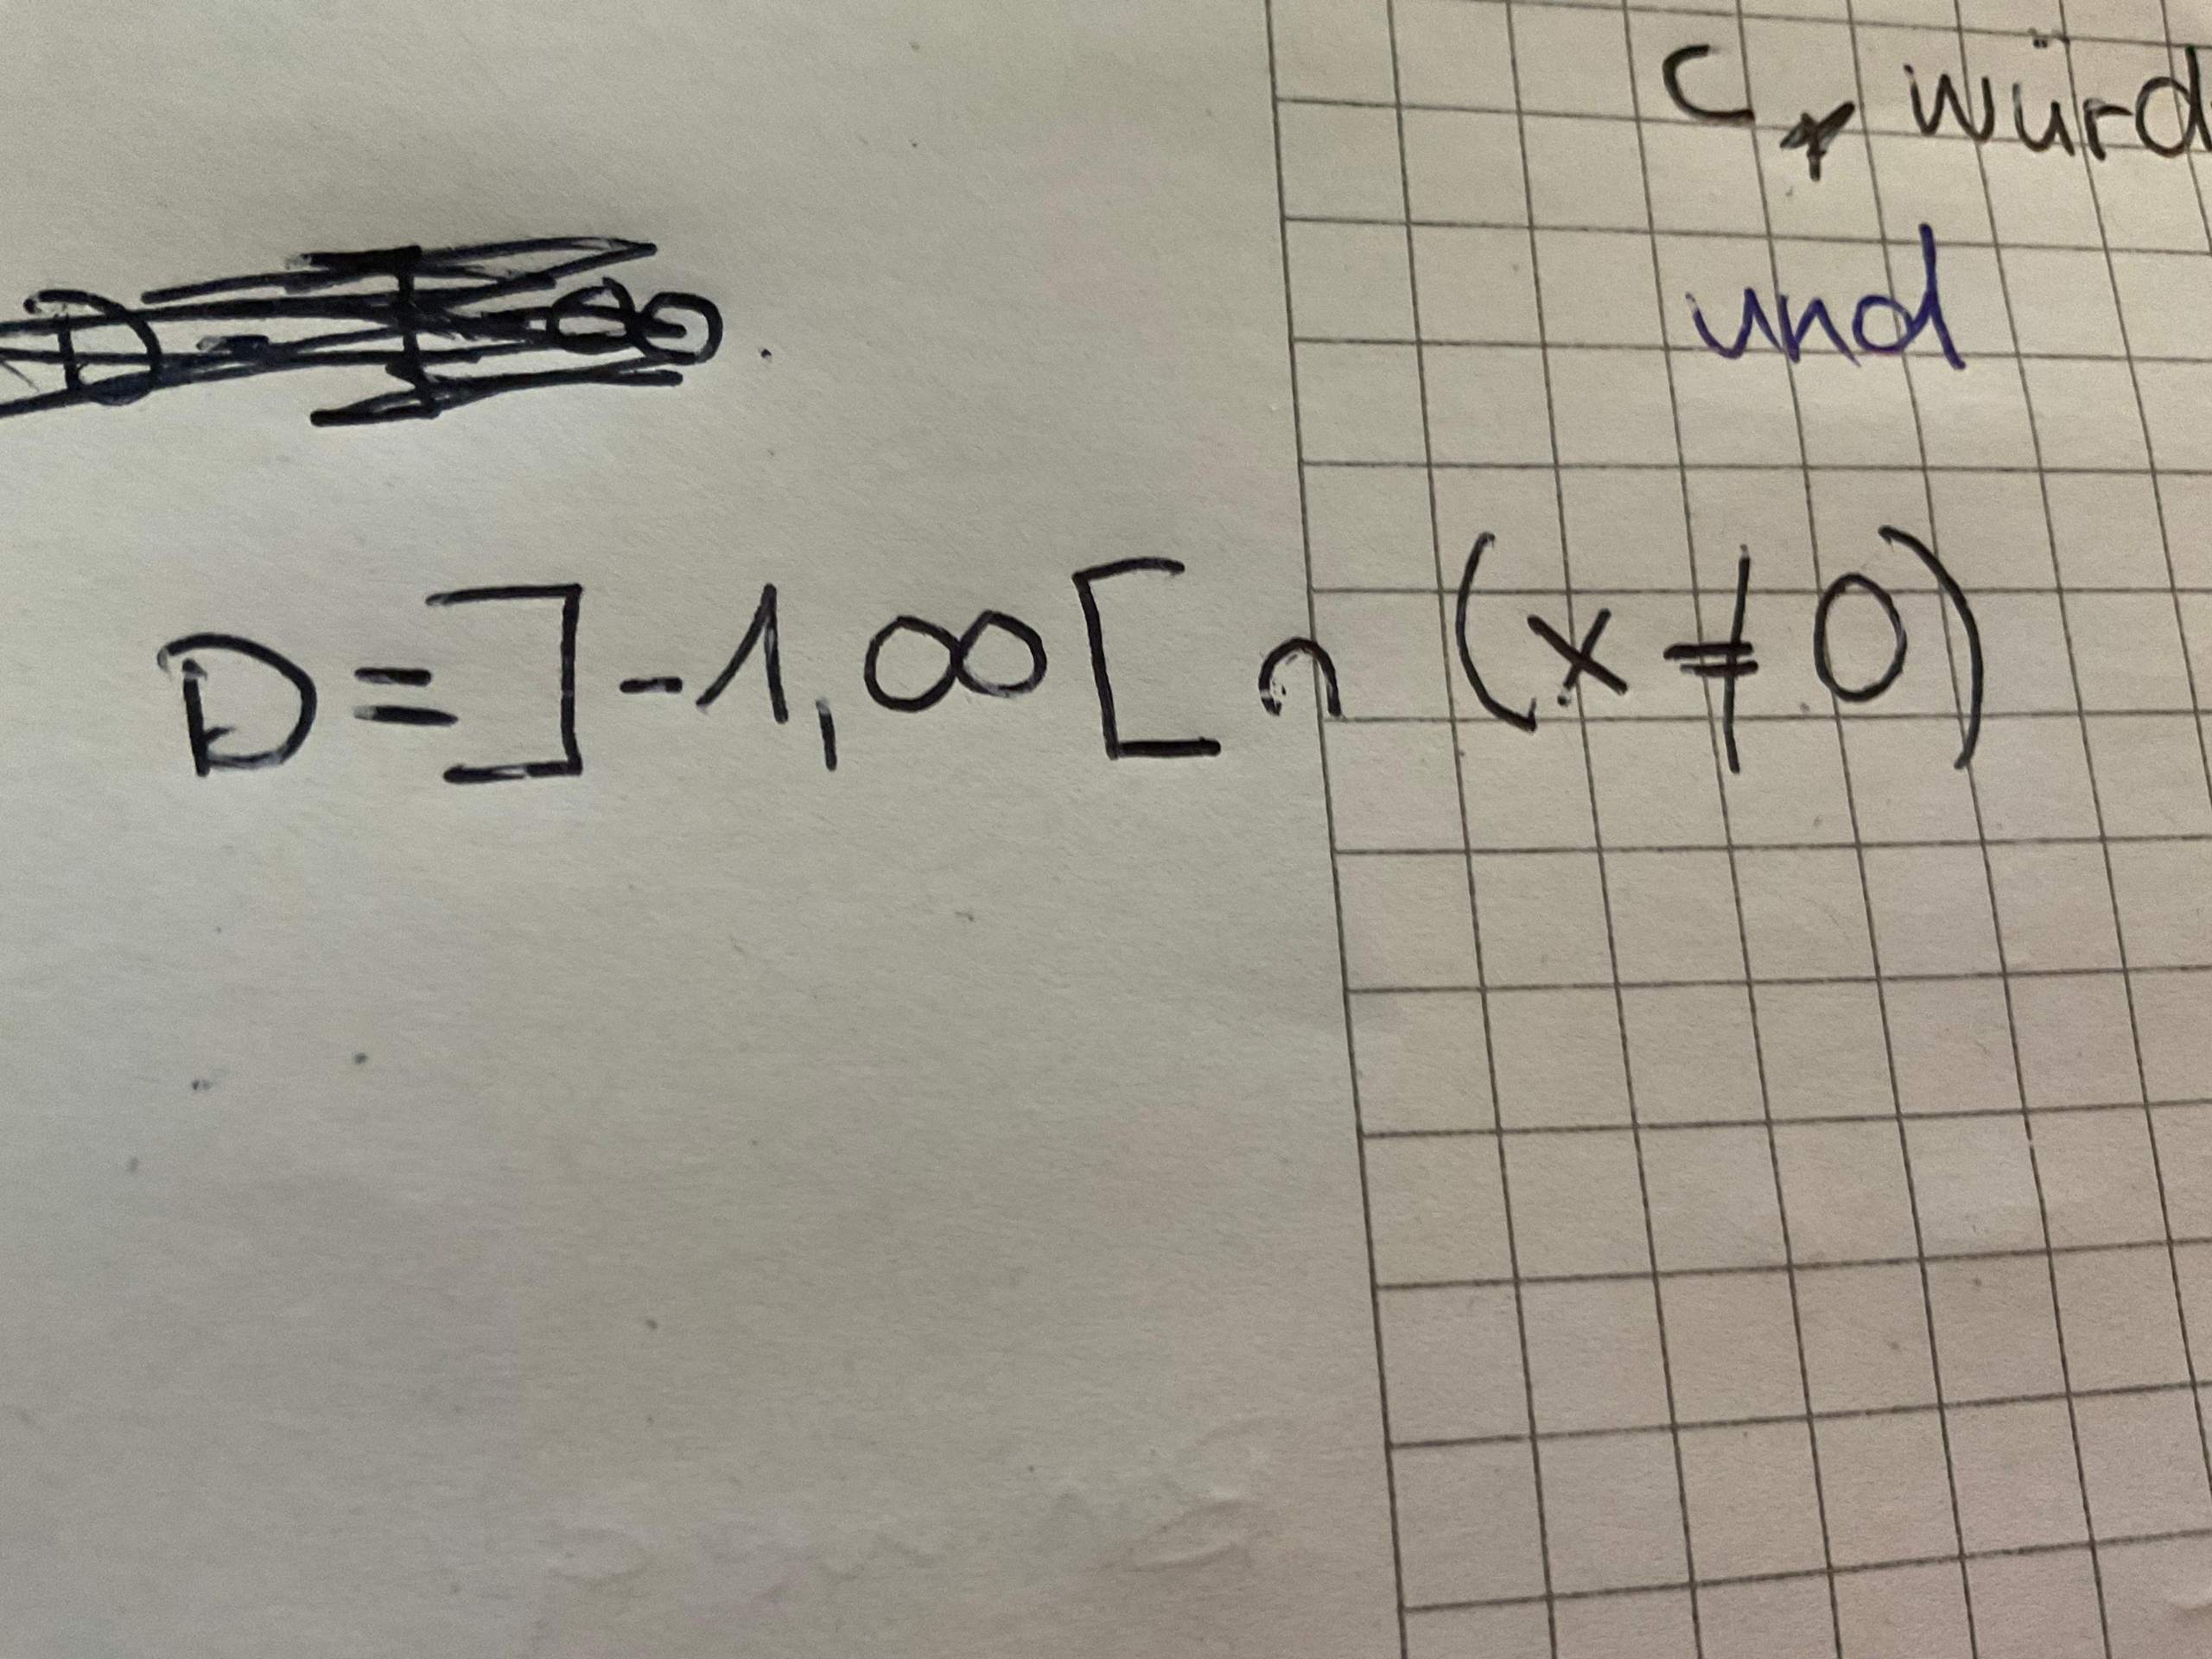 C, würd
und
D = ]-1,∞[ ∩ (x ≠ 0)